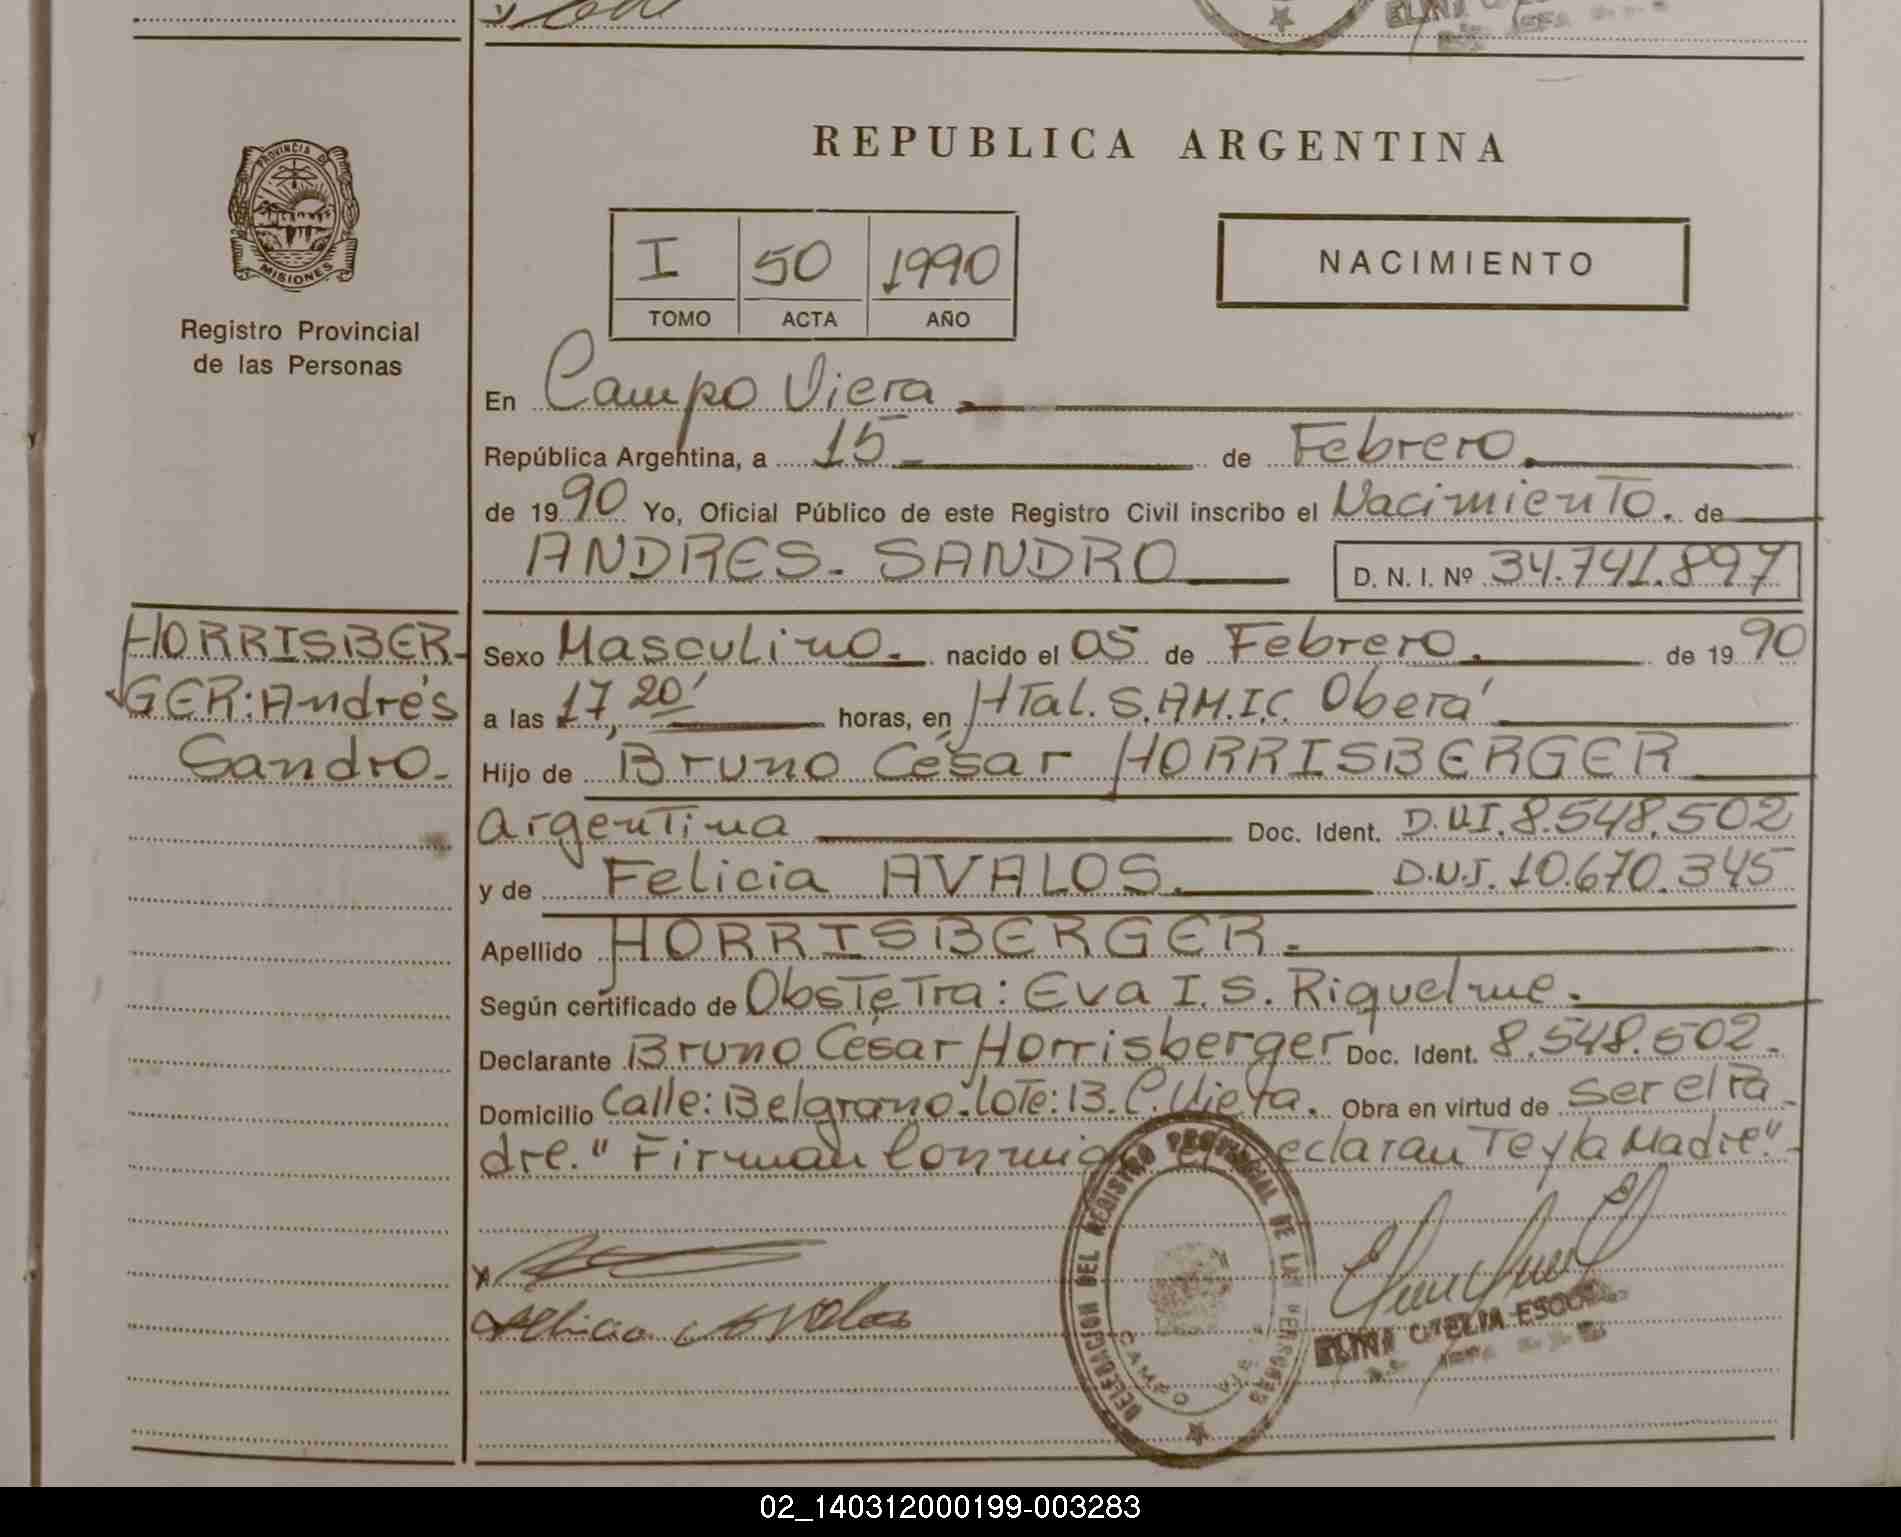 REPUBLICA ARGENTINA
PROVINCIA DE
MISIONES
Registro Provincial
de las Personas
I 50 1990
TOMO ACTA AÑO
NACIMIENTO
En Campo Viera
República Argentina, a 15 de Febrero.
de 1990 Yo, Oficial Público de este Registro Civil inscribo el Nacimiento. de
ANDRES. SANDRO D. N. I. Nº 34.741.897
HORRISBER-
GER: Andrés
Sandro.
Sexo Masculino. nacido el 05 de Febrero. de 1990
a las 17,20' horas, en HTal. S.AM.I.C. Oberá
Hijo de Bruno César HORRISBERGER
argentina Doc. Ident. D.N.I. 8.548.502
y de Felicia AVALOS. D.N.I. 10.670.345
Apellido HORRISBERGER.
Según certificado de Obstetra: Eva I. S. Riquelme.
Declarante Bruno César Horrisberger Doc. Ident. 8.548.502.
Domicilio Calle: Belgrano. loTe: 13. C. Viera. Obra en virtud de ser el Pa-
dre." Firman Conmigo el declaranTe y la Madre".
Felicia Avalos
DELEGACION DEL REGISTRO PROVINCIAL DE LAS PERSONAS
CAMPO VIERA
ELINA
02_140312000199-003283